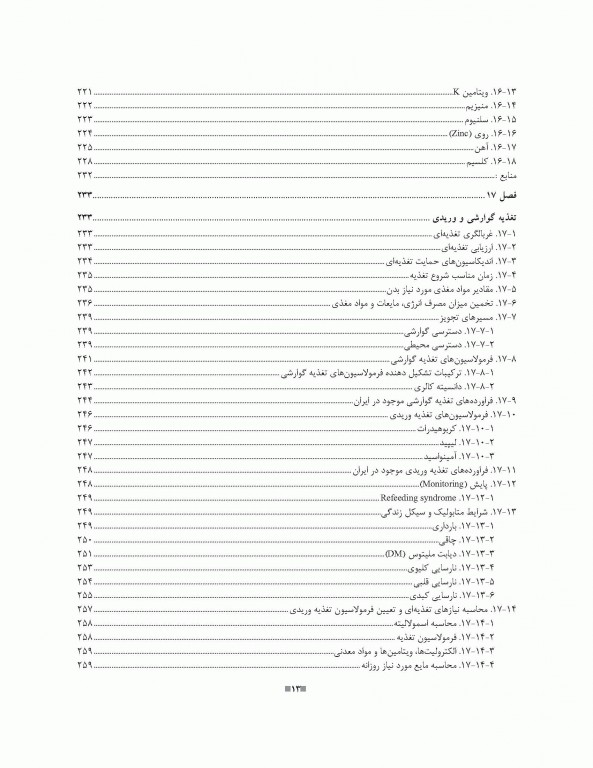 ۱۶-۱۳. ویتامین K ۲۲۱
۱۶-۱۴. منیزیم ۲۲۲
۱۶-۱۵. سلنیوم ۲۲۳
۱۶-۱۶. روی (Zinc) ۲۲۴
۱۶-۱۷. آهن ۲۲۵
۱۶-۱۸. کلسیم ۲۲۸
منابع : ۲۳۲
فصل ۱۷ ۲۳۳
تغذیه گوارشی و وریدی ۲۳۳
۱۷-۱. غربالگری تغذیه‌ای ۲۳۳
۱۷-۲. ارزیابی تغذیه‌ای ۲۳۳
۱۷-۳. اندیکاسیون‌های حمایت تغذیه‌ای ۲۳۴
۱۷-۴. زمان مناسب شروع تغذیه ۲۳۵
۱۷-۵. مقادیر مواد مغذی مورد نیاز بدن ۲۳۵
۱۷-۶. تخمین میزان مصرف انرژی، مایعات و مواد مغذی ۲۳۶
۱۷-۷. مسیرهای تجویز ۲۳۹
۱۷-۷-۱. دسترسی گوارشی ۲۳۹
۱۷-۷-۲. دسترسی محیطی ۲۳۹
۱۷-۸. فرمولاسیون‌های تغذیه گوارشی ۲۴۱
۱۷-۸-۱. ترکیبات تشکیل دهنده فرمولاسیون‌های تغذیه گوارشی ۲۴۲
۱۷-۸-۲. دانسیته کالری ۲۴۳
۱۷-۹. فراورده‌های تغذیه گوارشی موجود در ایران ۲۴۴
۱۷-۱۰. فرمولاسیون‌های تغذیه وریدی ۲۴۶
۱۷-۱۰-۱. کربوهیدرات ۲۴۶
۱۷-۱۰-۲. لیپید ۲۴۷
۱۷-۱۰-۳. آمینواسید ۲۴۷
۱۷-۱۱. فراورده‌های تغذیه وریدی موجود در ایران ۲۴۸
۱۷-۱۲. پایش (Monitoring) ۲۴۸
۱۷-۱۲-۱. Refeeding syndrome ۲۴۹
۱۷-۱۳. شرایط متابولیک و سیکل زندگی ۲۴۹
۱۷-۱۳-۱. بارداری ۲۴۹
۱۷-۱۳-۲. چاقی ۲۵۰
۱۷-۱۳-۳. دیابت ملیتوس (DM) ۲۵۱
۱۷-۱۳-۴. نارسایی کلیوی ۲۵۳
۱۷-۱۳-۵. نارسایی قلبی ۲۵۴
۱۷-۱۳-۶. نارسایی کبدی ۲۵۵
۱۷-۱۴. محاسبه نیازهای تغذیه‌ای و تعیین فرمولاسیون تغذیه وریدی ۲۵۷
۱۷-۱۴-۱. محاسبه اسمولالیته ۲۵۸
۱۷-۱۴-۲. فرمولاسیون تغذیه ۲۵۸
۱۷-۱۴-۳. الکترولیت‌ها، ویتامین‌ها و مواد معدنی ۲۵۹
۱۷-۱۴-۴. محاسبه مایع مورد نیاز روزانه ۲۵۹
۱۳